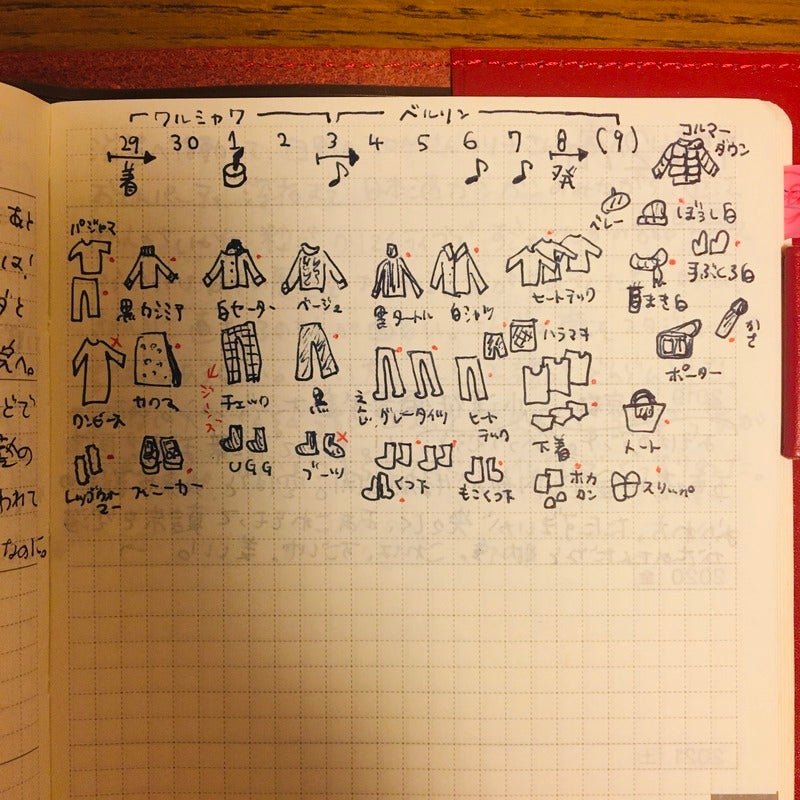 ワルシャワ ベルリン
29 30 1 2 3 4 5 6 7 8 (9)
着 発
コルマー
ダウン
ベレー ぼうし白
パジャマ
手ぶくろ白
黒カシミア 白セーター ベージュ 黒タートル 白シャツ ヒートテック 首まき白
かさ
ハラマキ
ポーター
ワンピース チェック 黒 グレータイツ ヒート
テック
ジーンズ
下着 トート
レッグウォー
マー スニーカー UGG ブーツ くつ下 もこくつ下 ホカ
ロン スリッパ
あと
は!
ダと
え へ。
どで
われて
なのに。
2020
2021 土